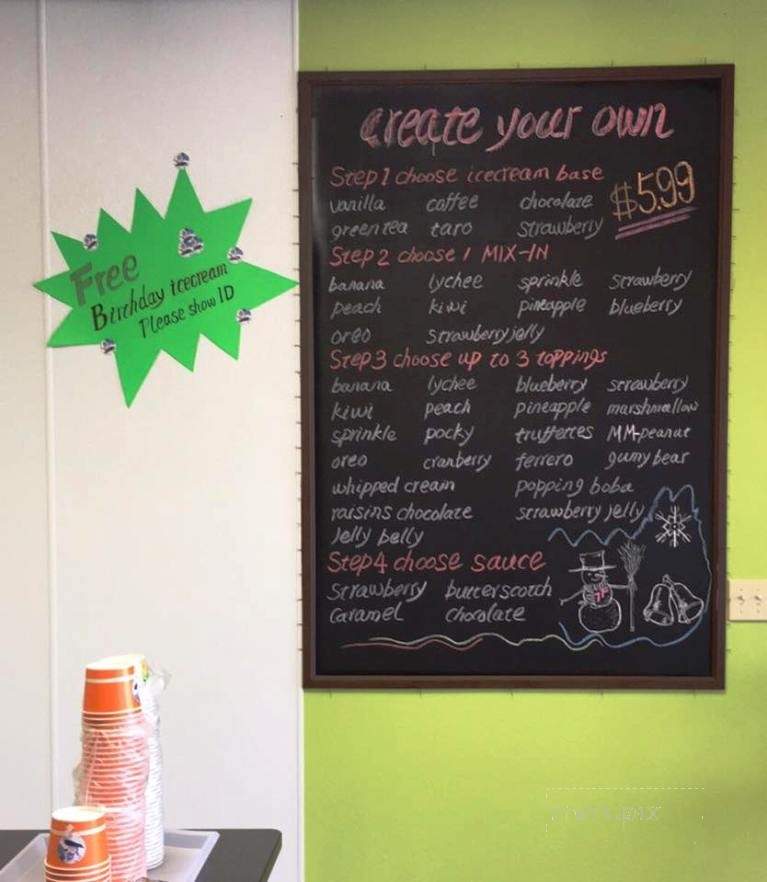 create your own
Step 1 choose icecream base
$5.99
vanilla coffee chocolate
green tea taro strawberry
Step 2 choose 1 MIX-IN
banana lychee sprinkle strawberry
peach kiwi pineapple blueberry
oreo strawberry jelly
Step 3 choose up to 3 toppings
banana lychee blueberry strawberry
kiwi peach pineapple marshmallow
sprinkle pocky truffettes MM-peanut
oreo cranberry ferrero gumy bear
whipped cream popping boba
raisins chocolate strawberry jelly
Jelly belly
Step 4 choose sauce
Strawberry butterscotch
Caramel Chocolate
Free
Birthday icecream
Please show ID